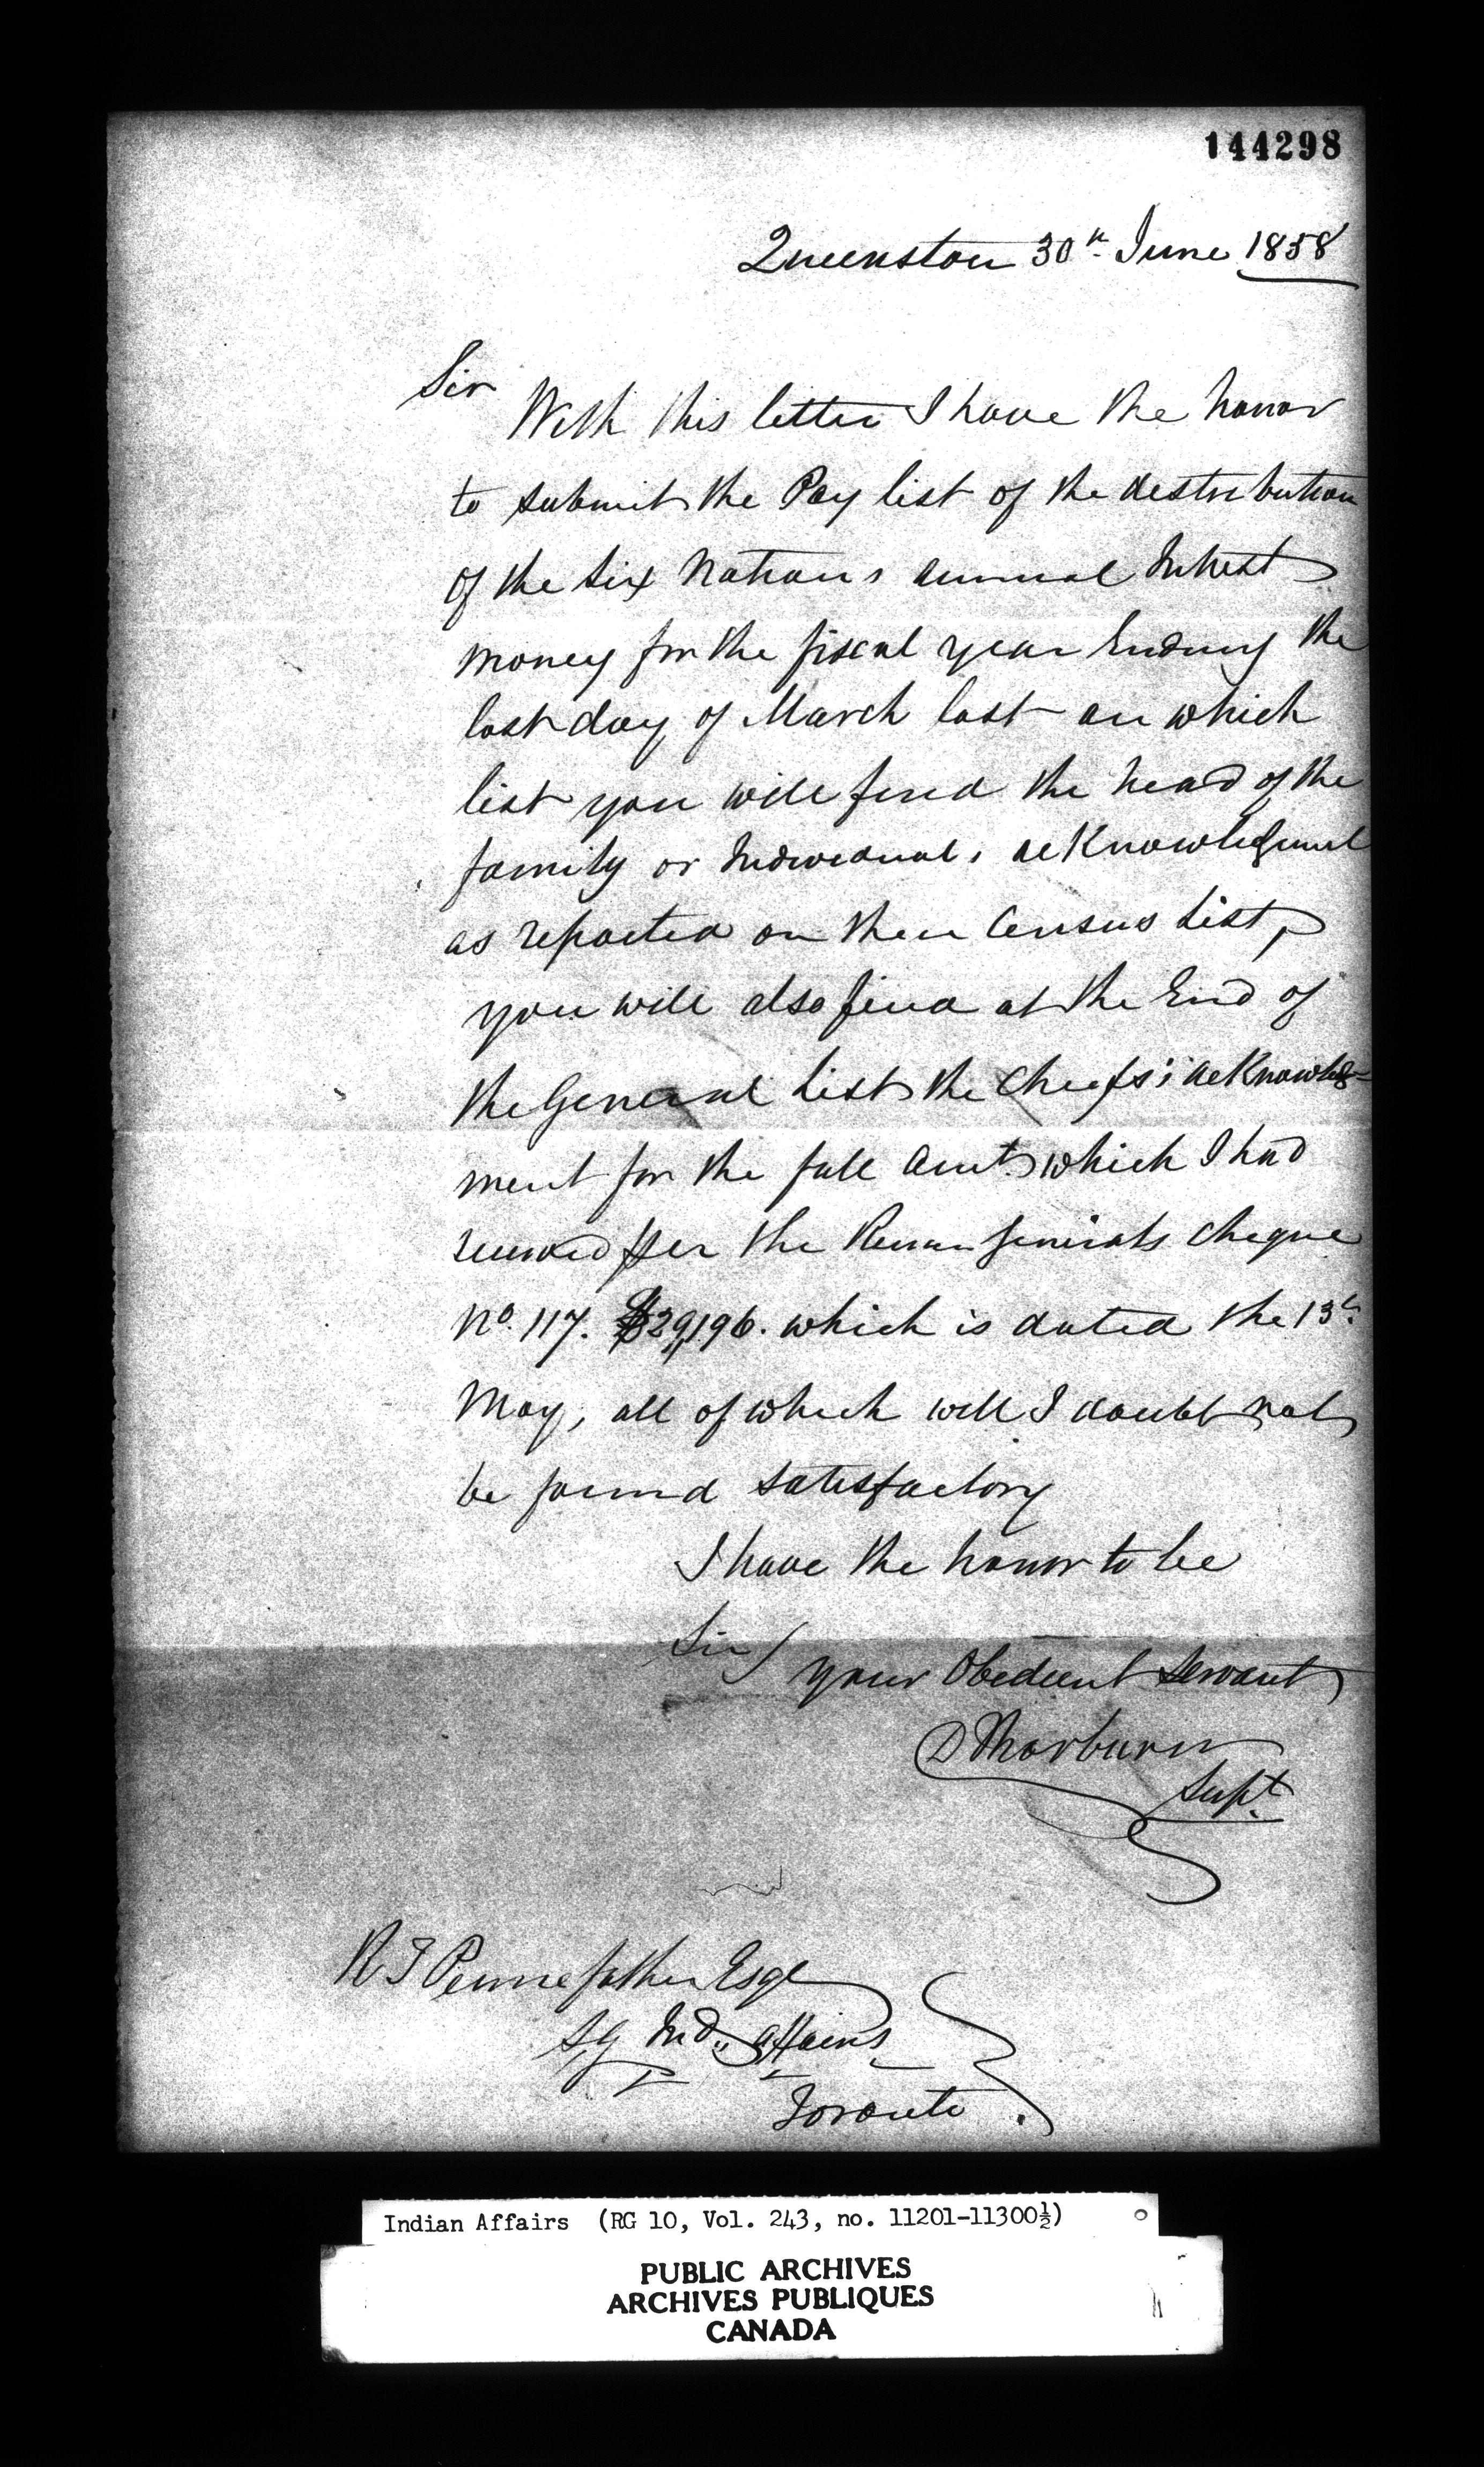 144298
Queenston 30th June 1858
Sir
With this letter I have the honor
to submit the Pay list of the distribution
of the Six Nations annual Interest
money for the fiscal year Ending the
last day of March last on which
list you will find the head of the
family or Individuals acknowledgment
as reported on their Census List,
you will also find at the End of
the General List the Chiefs' acknowledg-
ment for the full Amt. which I had
received per the Generals Cheque
No. 117. $29,196. which is dated the 13th
May, all of which will I doubt not
be found satisfactory
I have the honor to be
Sir
your Obedient Servant
D Thorburn
Supt.
R T Pennefather Esqr
S.G Ind. Affairs
Toronto.
Indian Affairs (RG 10, Vol. 243, no. 11201-11300½)
PUBLIC ARCHIVES
ARCHIVES PUBLIQUES
CANADA